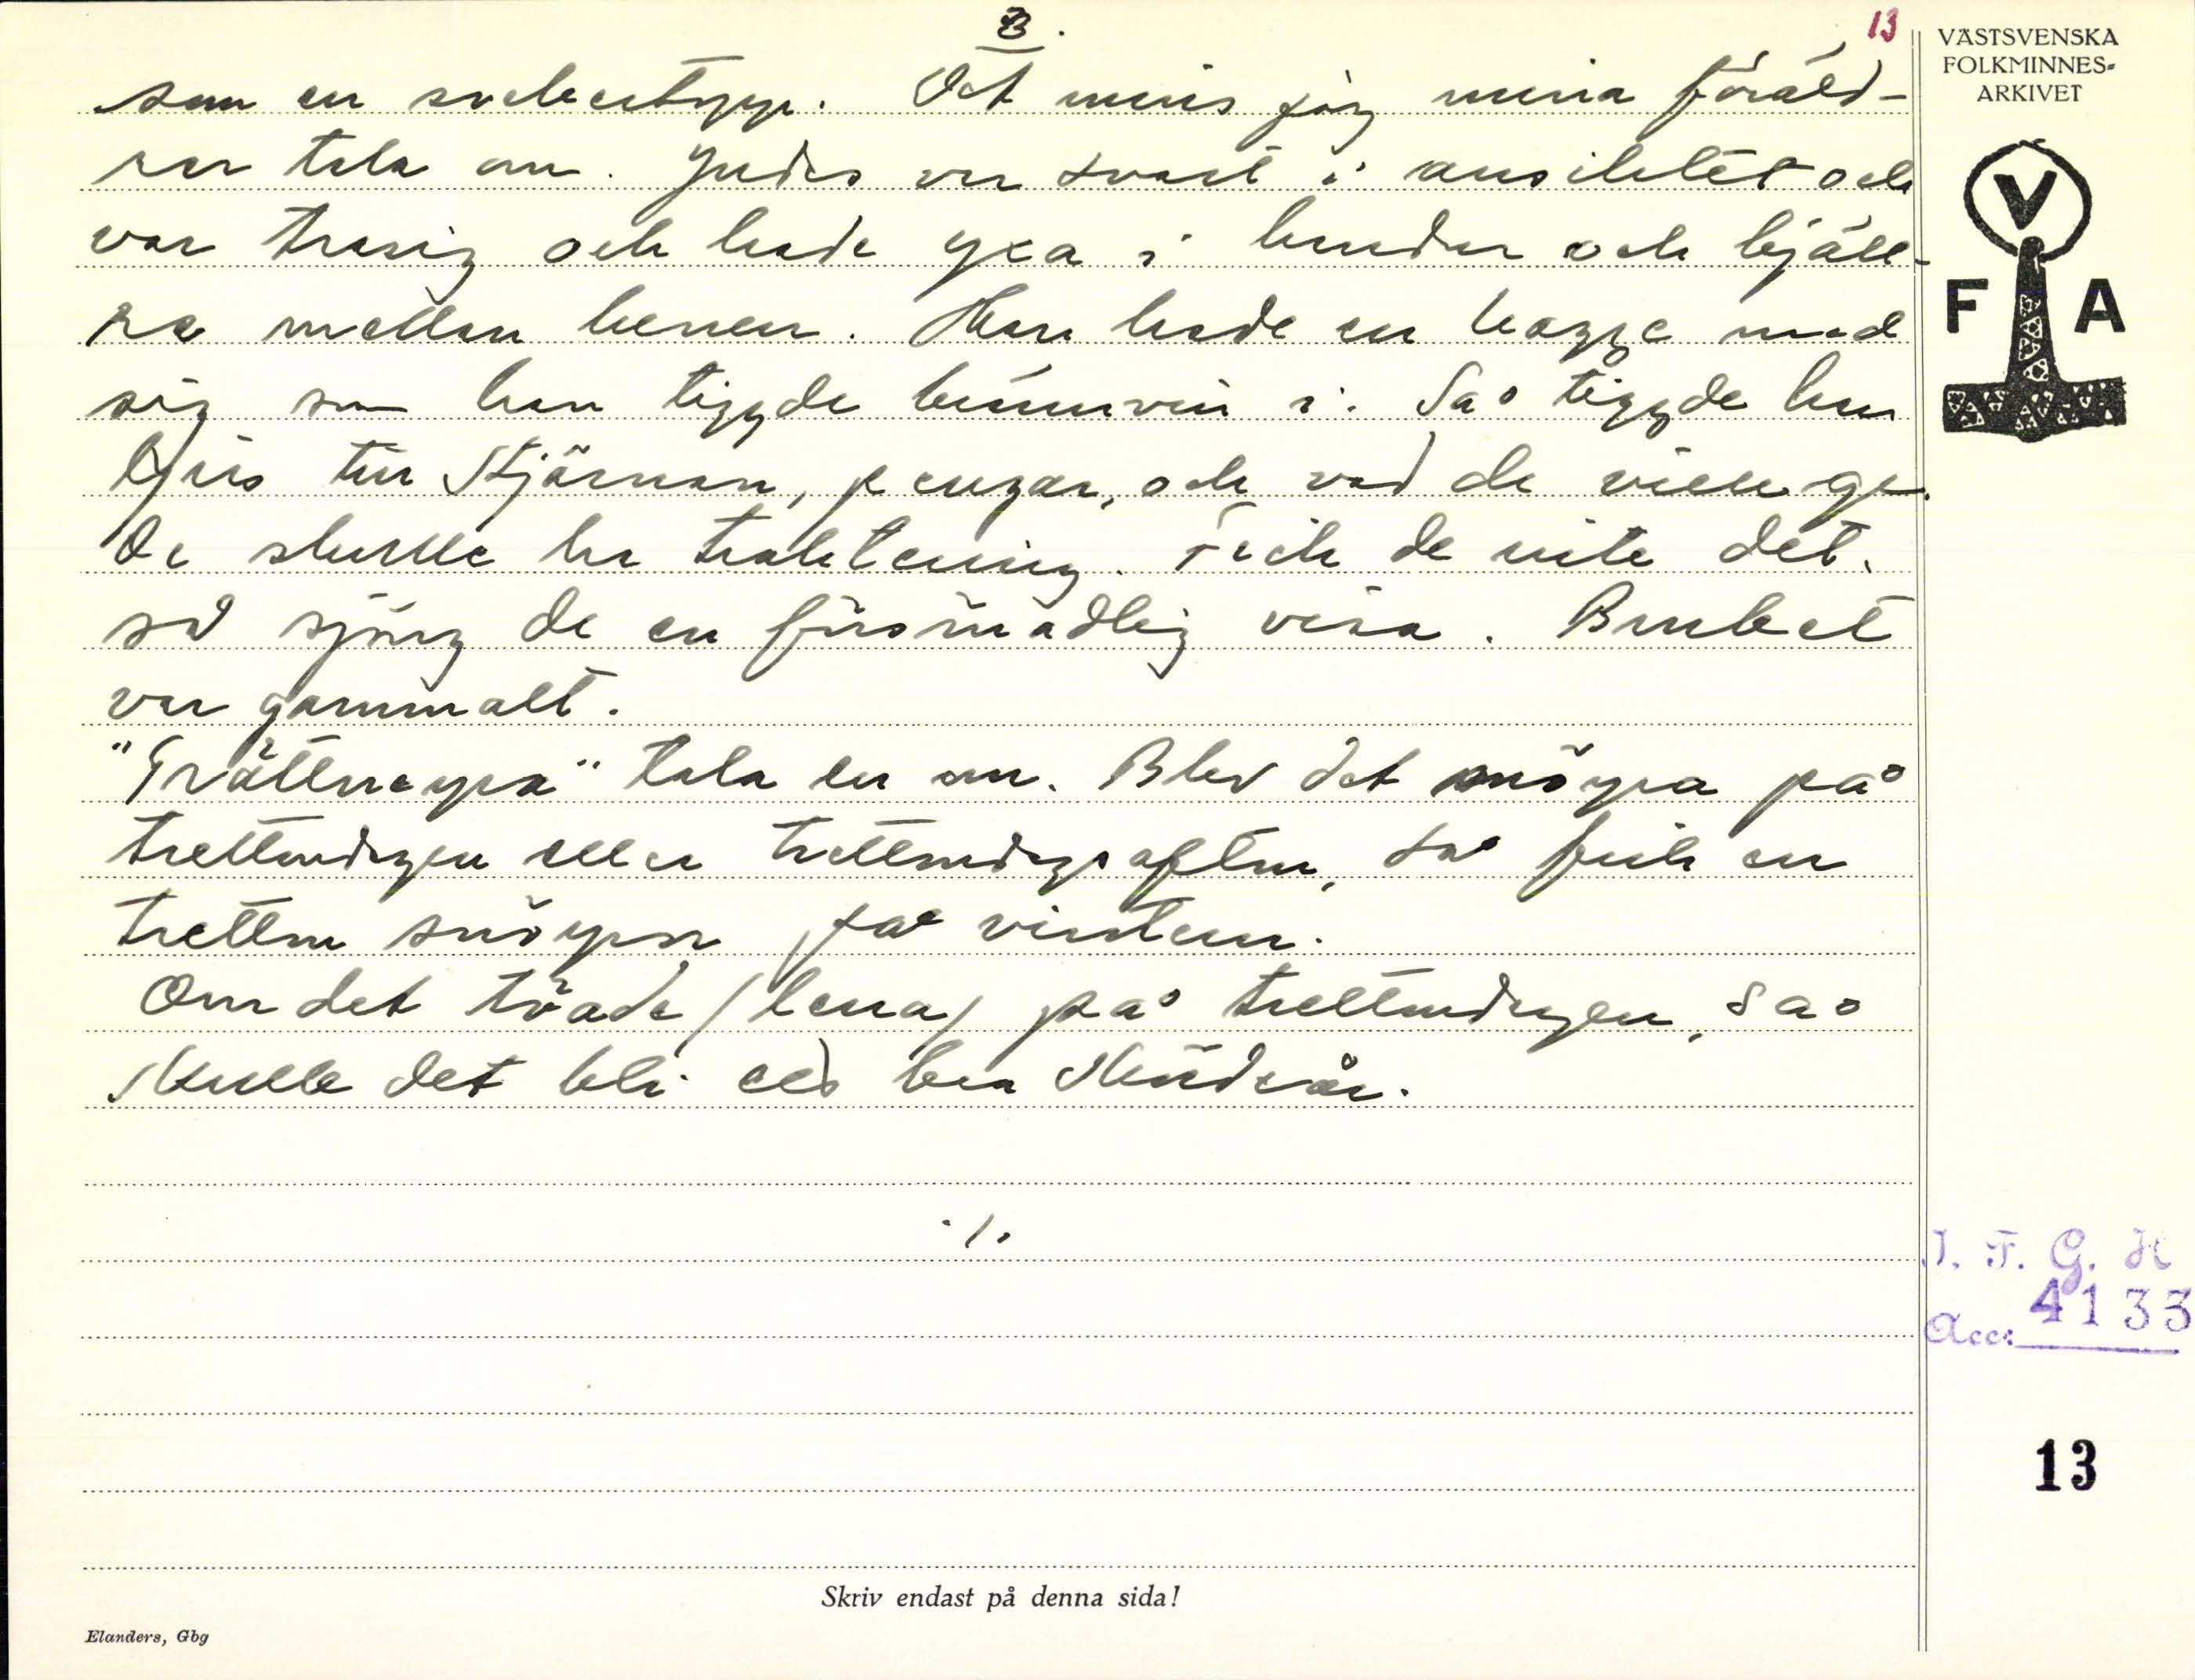 3.
13
som en sockertopp. Det minns jag mina föräld-
rar tala om. Judas var svart i ansiktet och
var trasig och hade yxa i handen och bjäll-
ra mellan benen. Han hade en kagge med
sig som han tiggde brännvin i. Så tiggde han
ljus till Stjärnan, pengar, och vad de ville ge.
De skulle ha traktering. Fick de inte det.
så sjöng de en försmädlig visa. Bruket
var gammalt.
"Trättneyra" tala en om. Blev det snöyra på
trettondagen eller trettondagsafton, så fick en
tretton snöyror på vintern.
Om det töade /lena/ på trettondagen, så
skulle det bli ett bra skördeår.
./.
Skriv endast på denna sida!
Elanders, Gbg
VÄSTSVENSKA
FOLKMINNES-
ARKIVET
V
F A
I. F. G. H
Acc: 4133
13